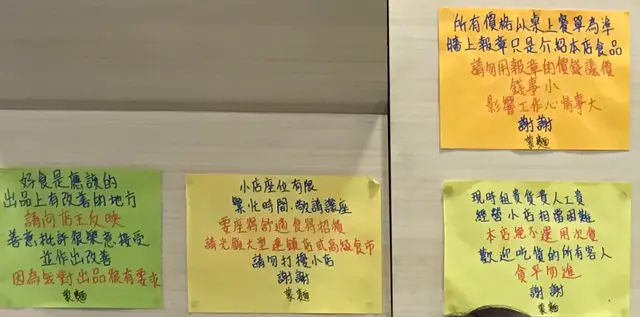 所有價格以桌上餐單為準
牆上報章只是介紹本店食品
請勿用報章的價錢議價
錢事小
影響工作心情事大
謝謝
製麵
好食是應該的
出品上有改善的地方
請向店主反映
善意批評很樂意接受
並作出改善
因為並對出品很有要求
製麵
小店座位有限
繁忙時間,敬請讓座
要座得舒適食得招積
請光顧大型連鎖店或高級食市
請勿打擾小店
謝謝
製麵
現時租貴貨貴人工貴
經營小店相當困難
本店絕不選用次貨
歡迎吃貨的所有客人
貪平勿進
謝謝
製麵